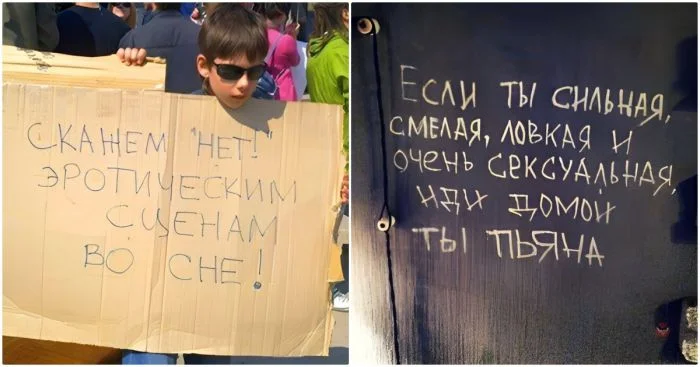 СКАЖЕМ "НЕТ!"
ЭРОТИЧЕСКИМ
СЦЕНАМ
ВО СНЕ!
ЕСЛИ ТЫ СИЛЬНАЯ,
СМЕЛАЯ, ЛОВКАЯ И
ОЧЕНЬ СЕКСУАЛЬНАЯ,
ИДИ ДОМОЙ
ТЫ ПЬЯНА